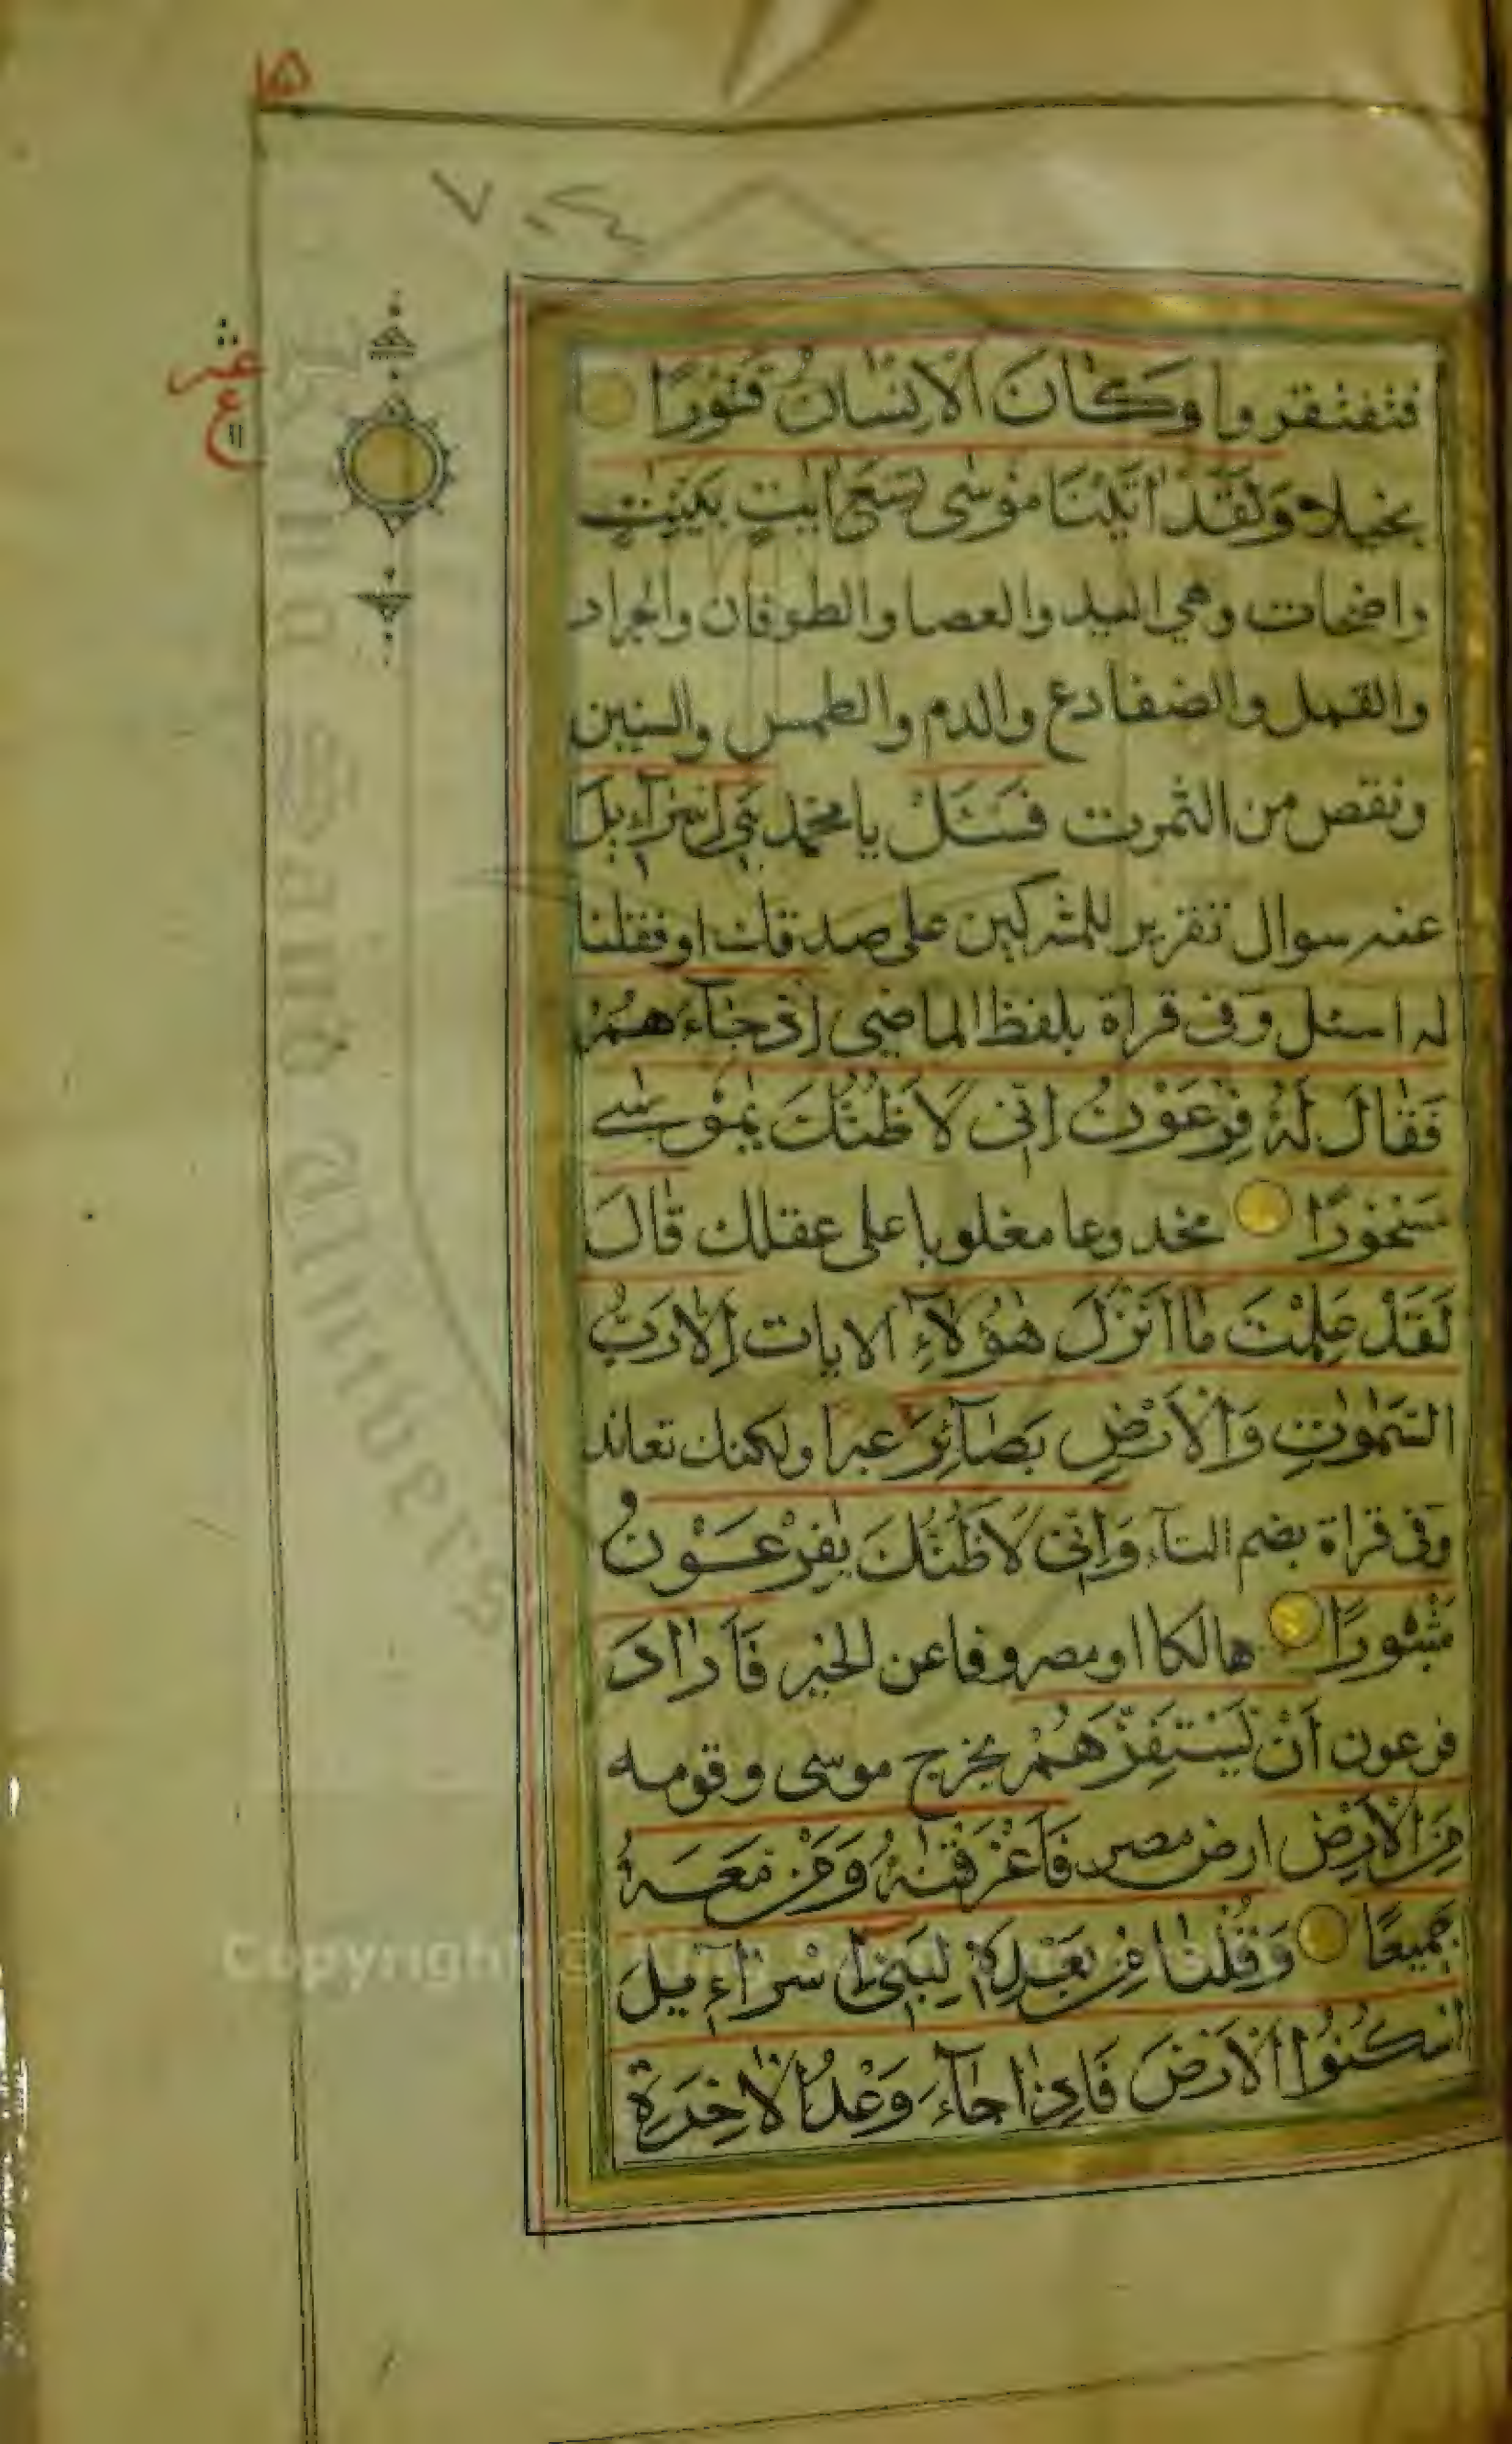 ١٥
٧٠٤
عشر
ع
١١
فتفتقروا وَكَانَ الْاِنْسَانُ قَتُورًا
بخيلا وَلَقَدْ اٰتَيْنَا مُوْسٰى تِسْعَ اٰيٰتٍ بَيِّنٰتٍ
واضحات وهي اليد والعصا والطوفان والجراد
والقمل والضفادع والدم والطمس والسنين
ونقص من الثمرت فَسْئَلْ يا محمد بَنِيْ اِسْرَآءِيْلَ
عنه سوال تقرير للمشركين على صدقك او فقلنا
له اسئل وفى قراة بلفظ الماضي اِذْ جَآءَهُمْ
فَقَالَ لَهٗ فِرْعَوْنُ اِنِّىْ لَاَظُنُّكَ يٰمُوْسٰى
مَسْحُوْرًا مخدوعا مغلوبا على عقلك قَالَ
لَقَدْ عَلِمْتَ مَا اَنْزَلَ هٰؤُلَآءِ الايات اِلَّا رَبُّ
السَّمٰوٰتِ وَالْاَرْضِ بَصَآئِرَ عبرا ولكنك تعاند
وفى قراة بضم التآء وَاِنِّىْ لَاَظُنُّكَ يٰفِرْعَوْنُ
مَثْبُوْرًا هالكا او مصروفا عن الخير فَاَرَادَ
فرعون اَنْ يَسْتَفِزَّهُمْ يخرج موسى وقومه
مِنَ الْاَرْضِ ارض مصر فَاَغْرَقْنٰهُ وَمَنْ مَعَهٗ
جَمِيْعًا وَقُلْنَا مِنْ بَعْدِهٖ لِبَنِىْ اِسْرَآءِيْلَ
اسْكُنُوا الْاَرْضَ فَاِذَا جَآءَ وَعْدُ الْاٰخِرَةِ